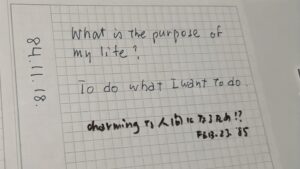 84.11.18.
What is the purpose of
my life?
To do what I want to do.
charmingな人間になるため!?
FEB. 23. '85